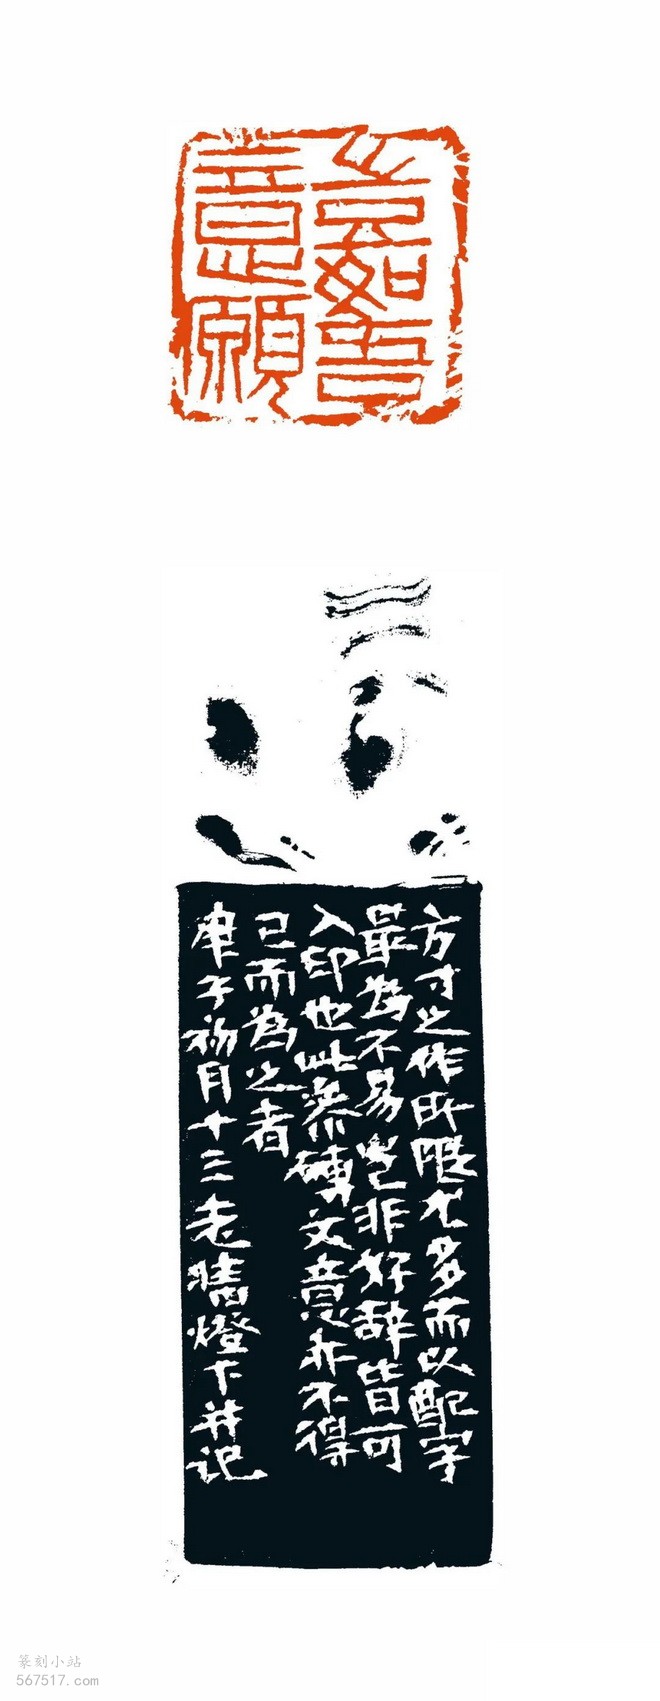 如吾
意願
方寸之作所限尤多而以配字
最為不易豈非好辞皆可
入印也此参磚文意亦不得
已而為之者
庚子初月十三老晴燈下并记
篆刻小站
567517.com